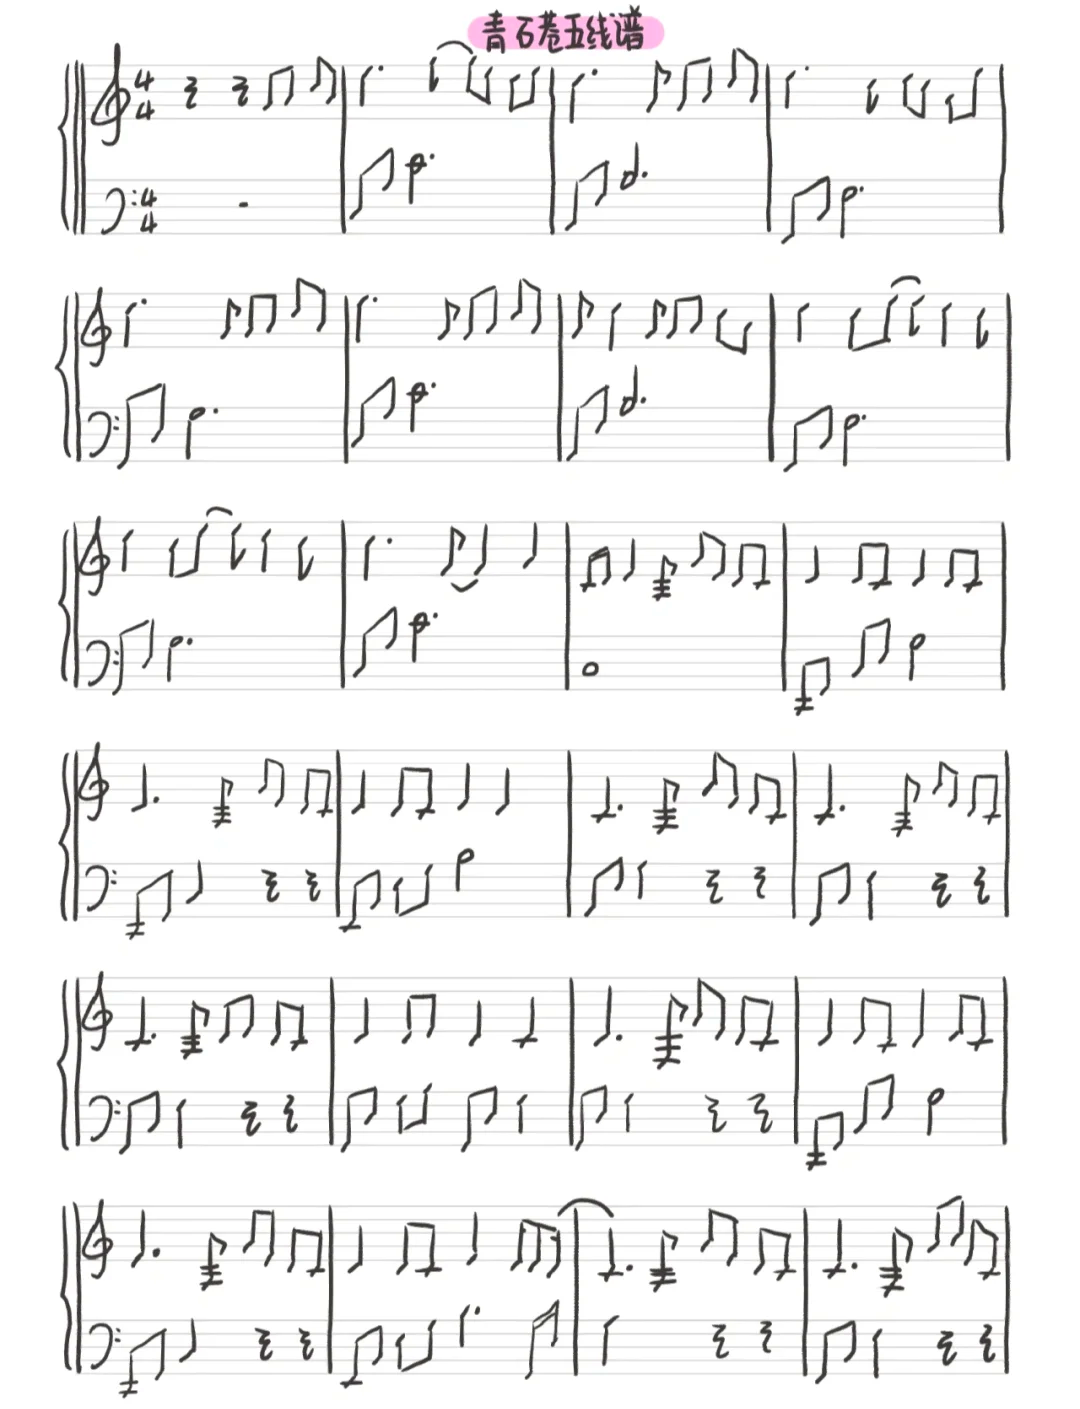 青石巷五线谱
4
4
4
4